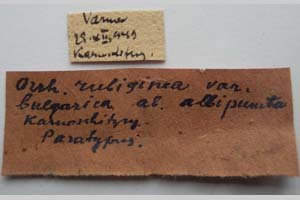 Varna
29.XII.1949
Karnoschitzky.
Orrh. rubiginea var.
bulgarica ab. albipuncta
Karnoschitzky.
Paratypus.